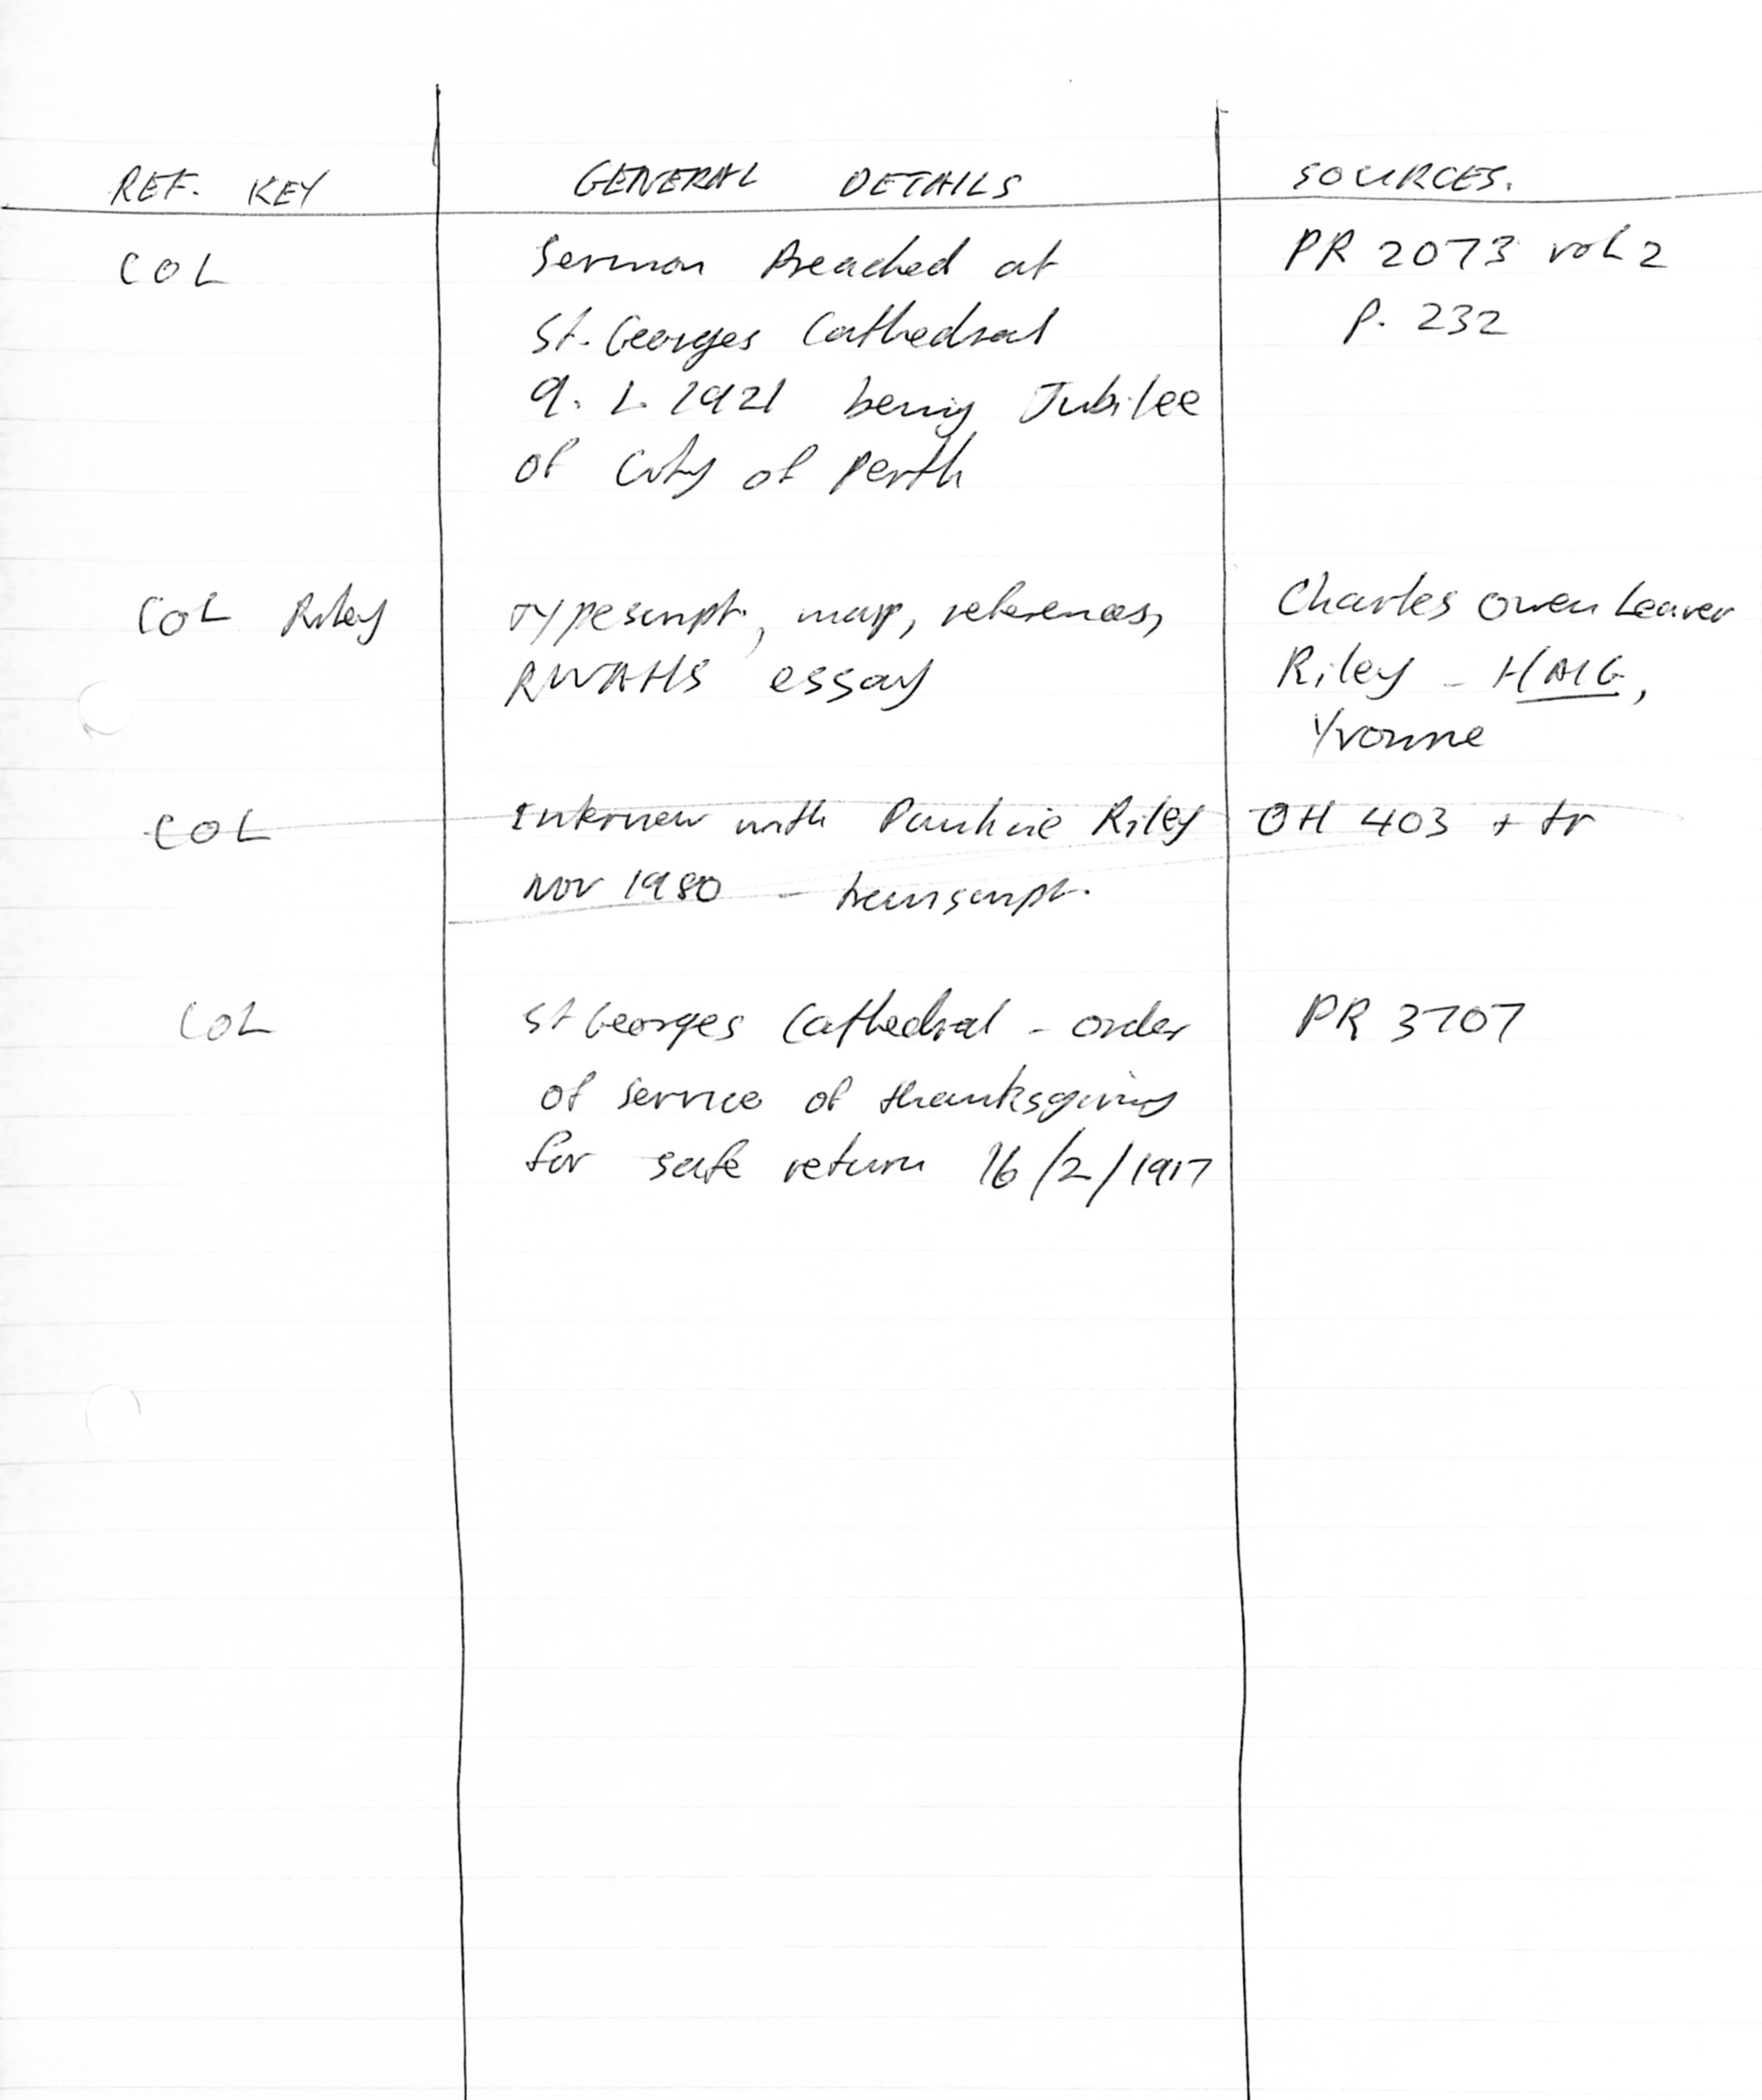 REF. KEY GENERAL DETAILS SOURCES.
COL Sermon Preached at PR 2073 vol 2
St. Georges Cathedral P. 232
9. 1. 1921 being Jubilee
of City of Perth
COL Riley Typescript, map, references, Charles Owen Leaver
RWAHS essay Riley - HAIG,
Yvonne
COL Interview with Pauline Riley OH 403 + tr
Nov 1980 - transcript.
COL St Georges Cathedral - order PR 3707
of service of thanksgiving
for safe return 16/2/1917